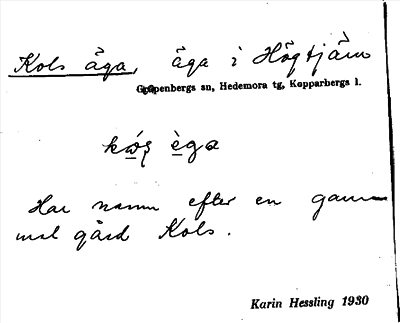 Kols äga, äga i Högtjärn
Garpenbergs sn, Hedemora tg, Kopparbergs l.
Har namn efter en gam-
mal gård Kols.
Karin Hessling 1930